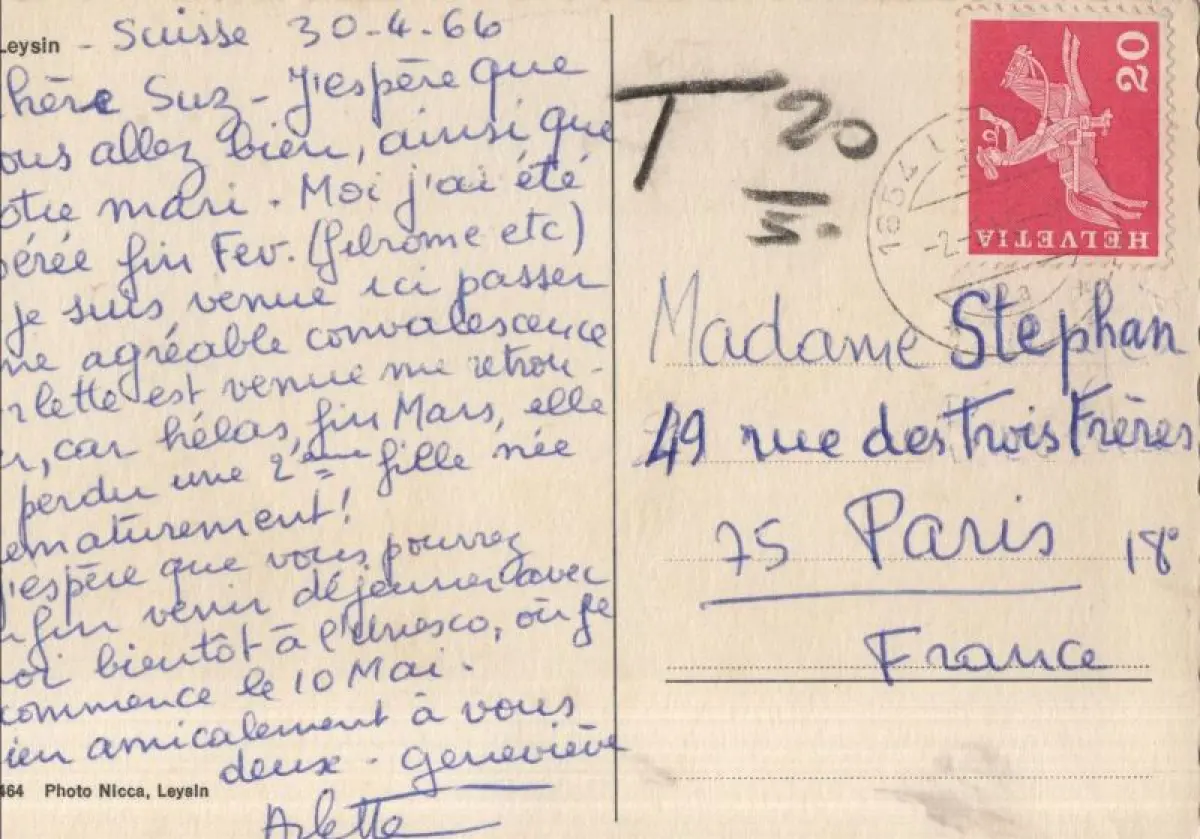 Leysin - Suisse 30-4-66
hère Suz - J'espère que
ous allez bien, ainsi que
otre mari. Moi j'ai été
pérée fin Fev. (fibrome etc)
je suis venue ici passer
ne agréable convalescence
rlette est venue me retrou-
r, car hélas, fin Mars, elle
perdu une 2ème fille née
ématurement!
j'espère que vous pourrez
nfin venir déjeuner avec
oi bientôt à l'Unesco, où je
commence le 10 Mai.
ien amicalement à vous
deux - Geneviève
Arlette
464 Photo Nicca, Leysin
T 20
HELVETIA
20
1854 L
-2.
Madame Stephan
49 rue des Trois Frères
75 Paris 18e
France